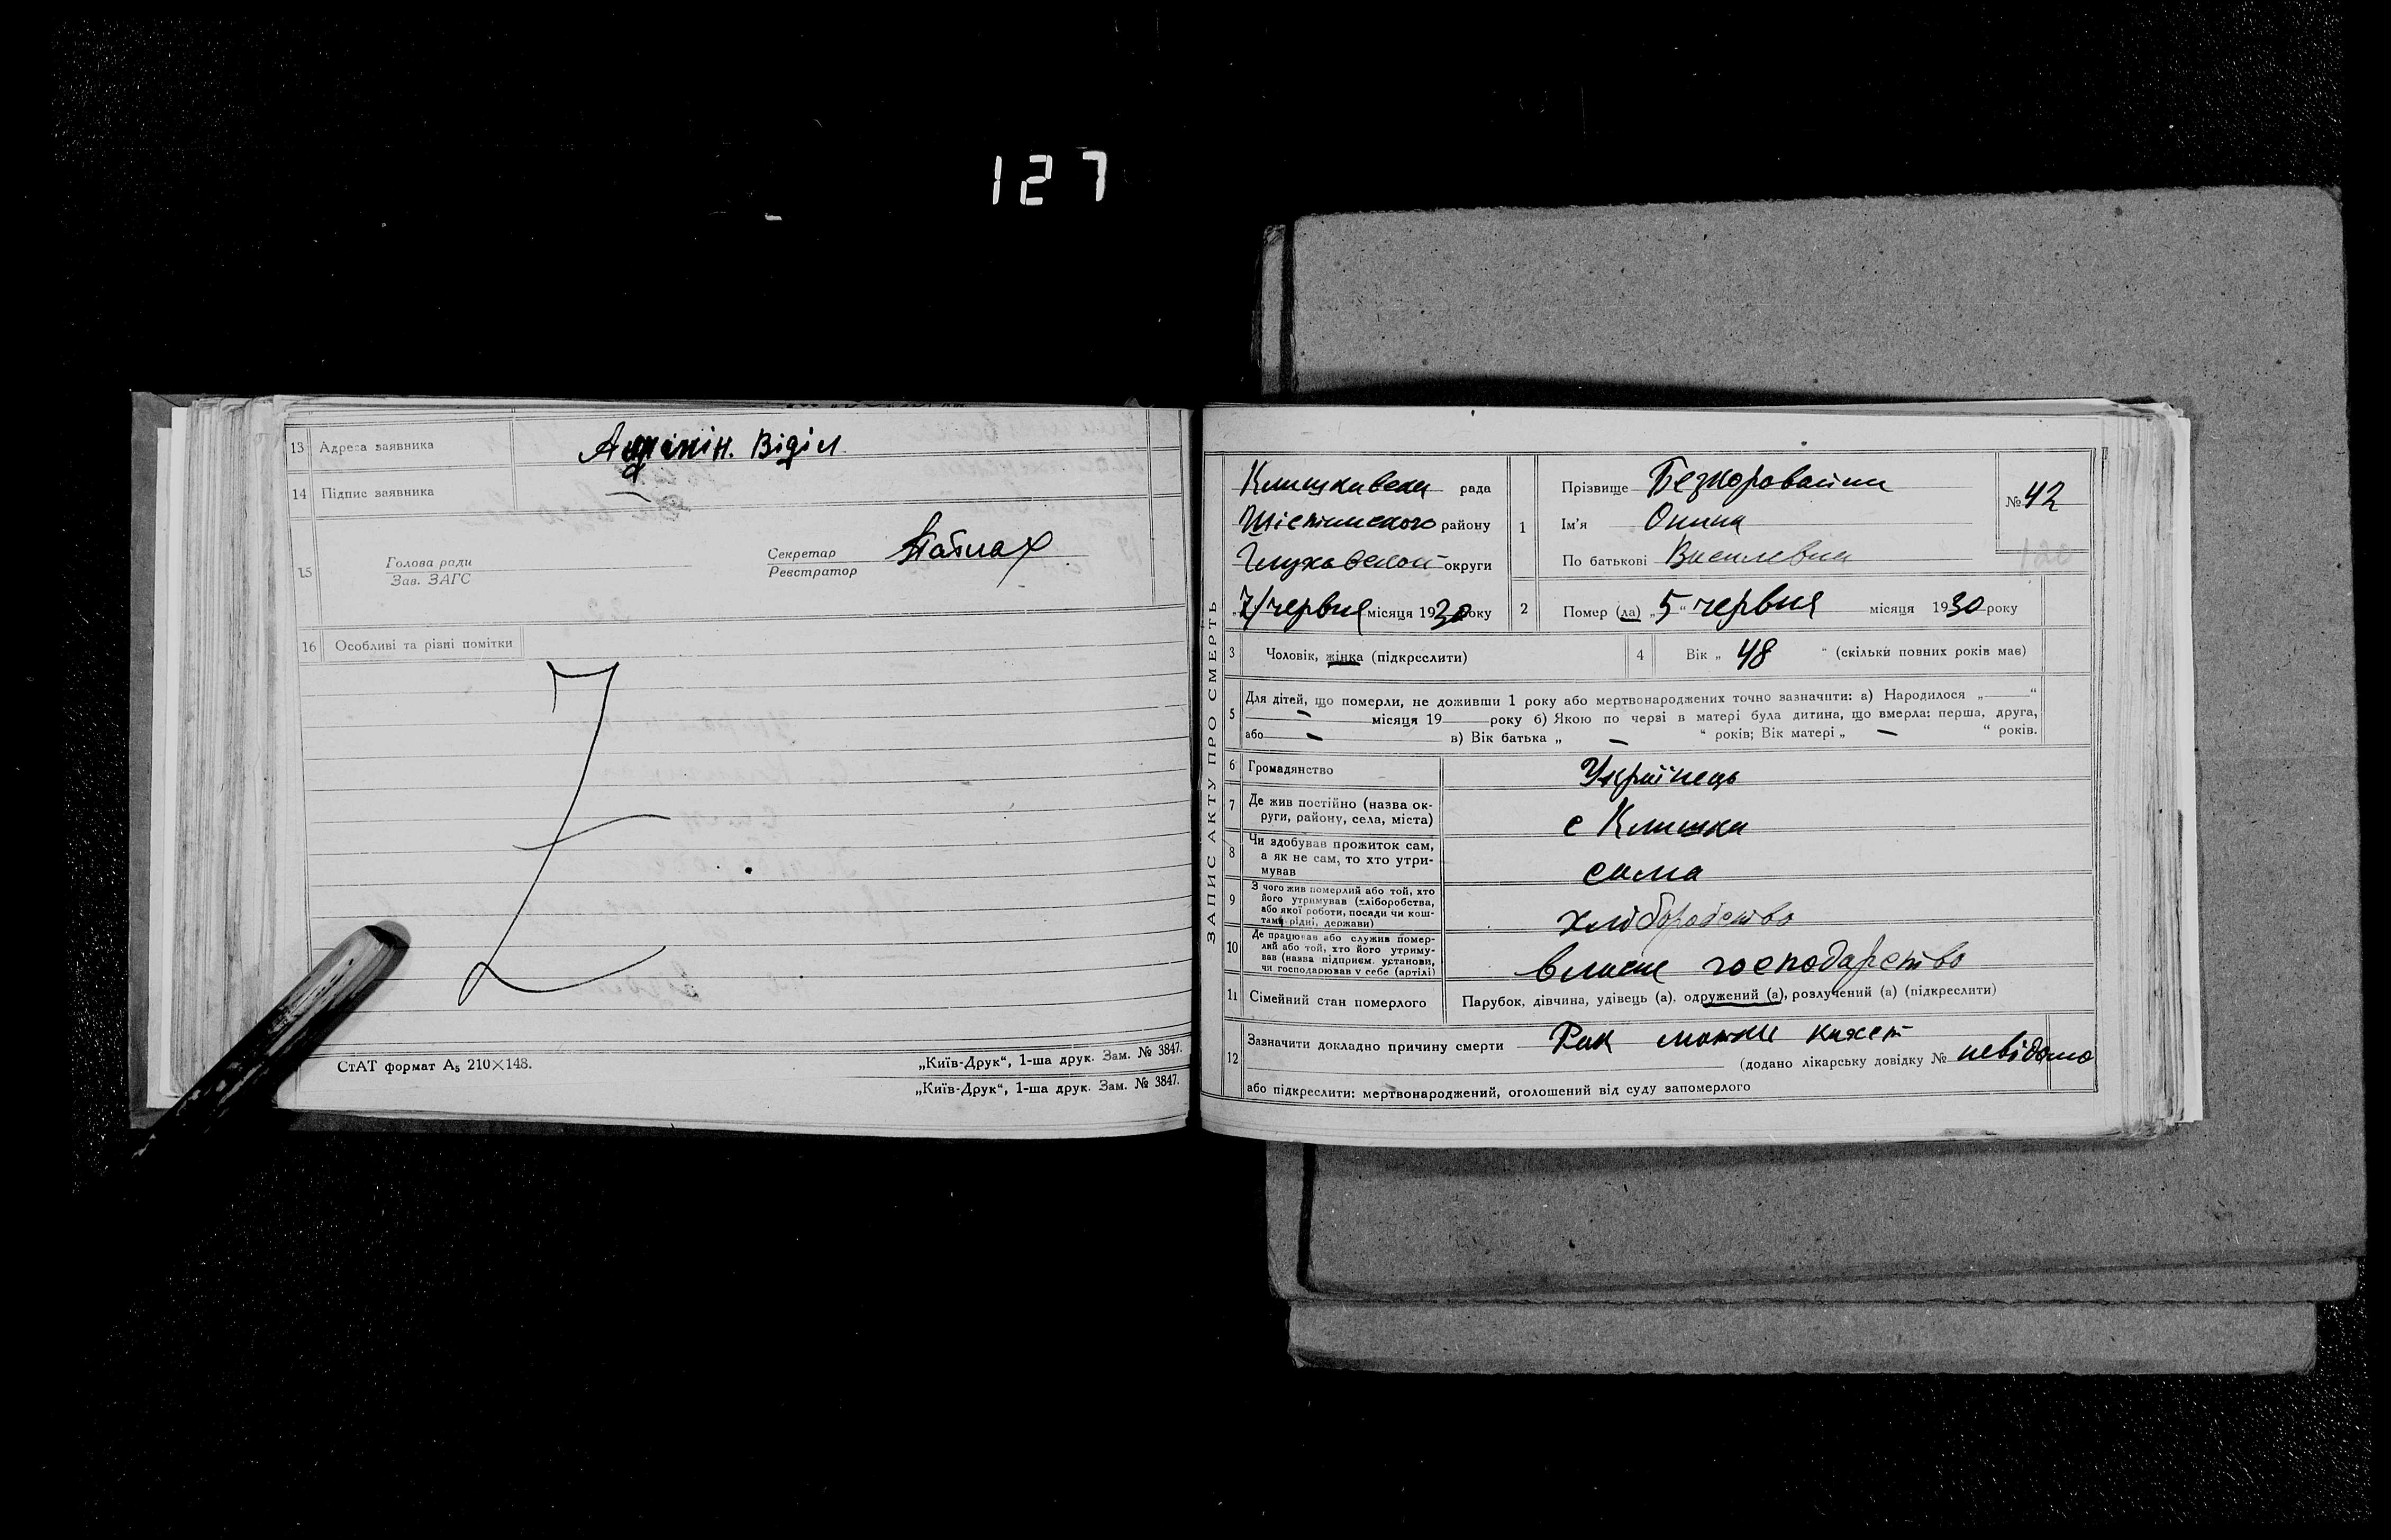 127
13 Адреса заявника Адмінін. Віділ.
14 Підпис заявника —
15 Голова ради
Зав. ЗАГС
Секретар
Реєстратор
16 Особливі та різні помітки
СтАТ формат А5 210×148.
„Київ-Друк“, 1-ша друк. Зам. № 3847.
„Київ-Друк“, 1-ша друк. Зам. № 3847.
ЗАПИС АКТУ ПРО СМЕРТЬ
Клишкивська рада
Шістинского району
Глуховской округи
„7/червня місяця 1930 року
1 Прізвище Безкоровайна
Ім'я Онина
По батькові Василевна
№ 42
2 Помер (ла) „5“ червня місяця 1930 року
3 Чоловік, жінка (підкреслити)
4 Вік „ 48 “ (скільки повних років має)
5 Для дітей, що померли, не доживши 1 року або мертвонароджених точно зазначити: а) Народилося „—“
— місяця 19 — року б) Якою по черзі в матері була дитина, що вмерла: перша, друга,
або — в) Вік батька „ — “ років; Вік матері „ — “ років.
6 Громадянство Українець
7 Де жив постійно (назва ок-
руги, району, села, міста) с Клишки
8 Чи здобував прожиток сам,
а як не сам, то хто утри-
мував сама
9 З чого жив померлий або той, хто
його утримував (хліборобства,
або якої роботи, посади чи кош-
тами рідні, держави) хліборобство
10 Де працював або служив помер-
лий або той, хто його утриму-
вав (назва підприєм. установи,
чи господарював у себе (артілі) власне господарство
11 Сімейний стан померлого Парубок, дівчина, удівець (а), одружений (а), розлучений (а) (підкреслити)
12 Зазначити докладно причину смерти Рак
(додано лікарську довідку № невідомо
або підкреслити: мертвонароджений, оголошений від суду запомерлого